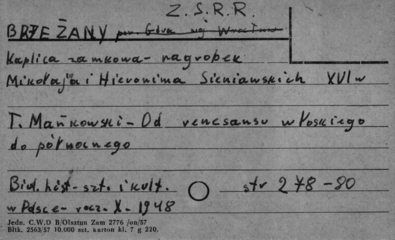 Z.S.R.R.
BRZEŻANY pow. Góra woj. Wrocław
Kaplica zamkowa - nagrobek
Mikołaja i Hieronima Sieniawskich XVI w
T. Mańkowski - Od renesansu włoskiego
do północnego
Biul. hist. szt. i kult. str 278-80
w Polsce - rocz. X. 1948
Jedn. C.W.D B/Olsztyn Zam 2776 /on/57
Bltk. 2563/57 10.000 szt. karton kl. 7 g 220.